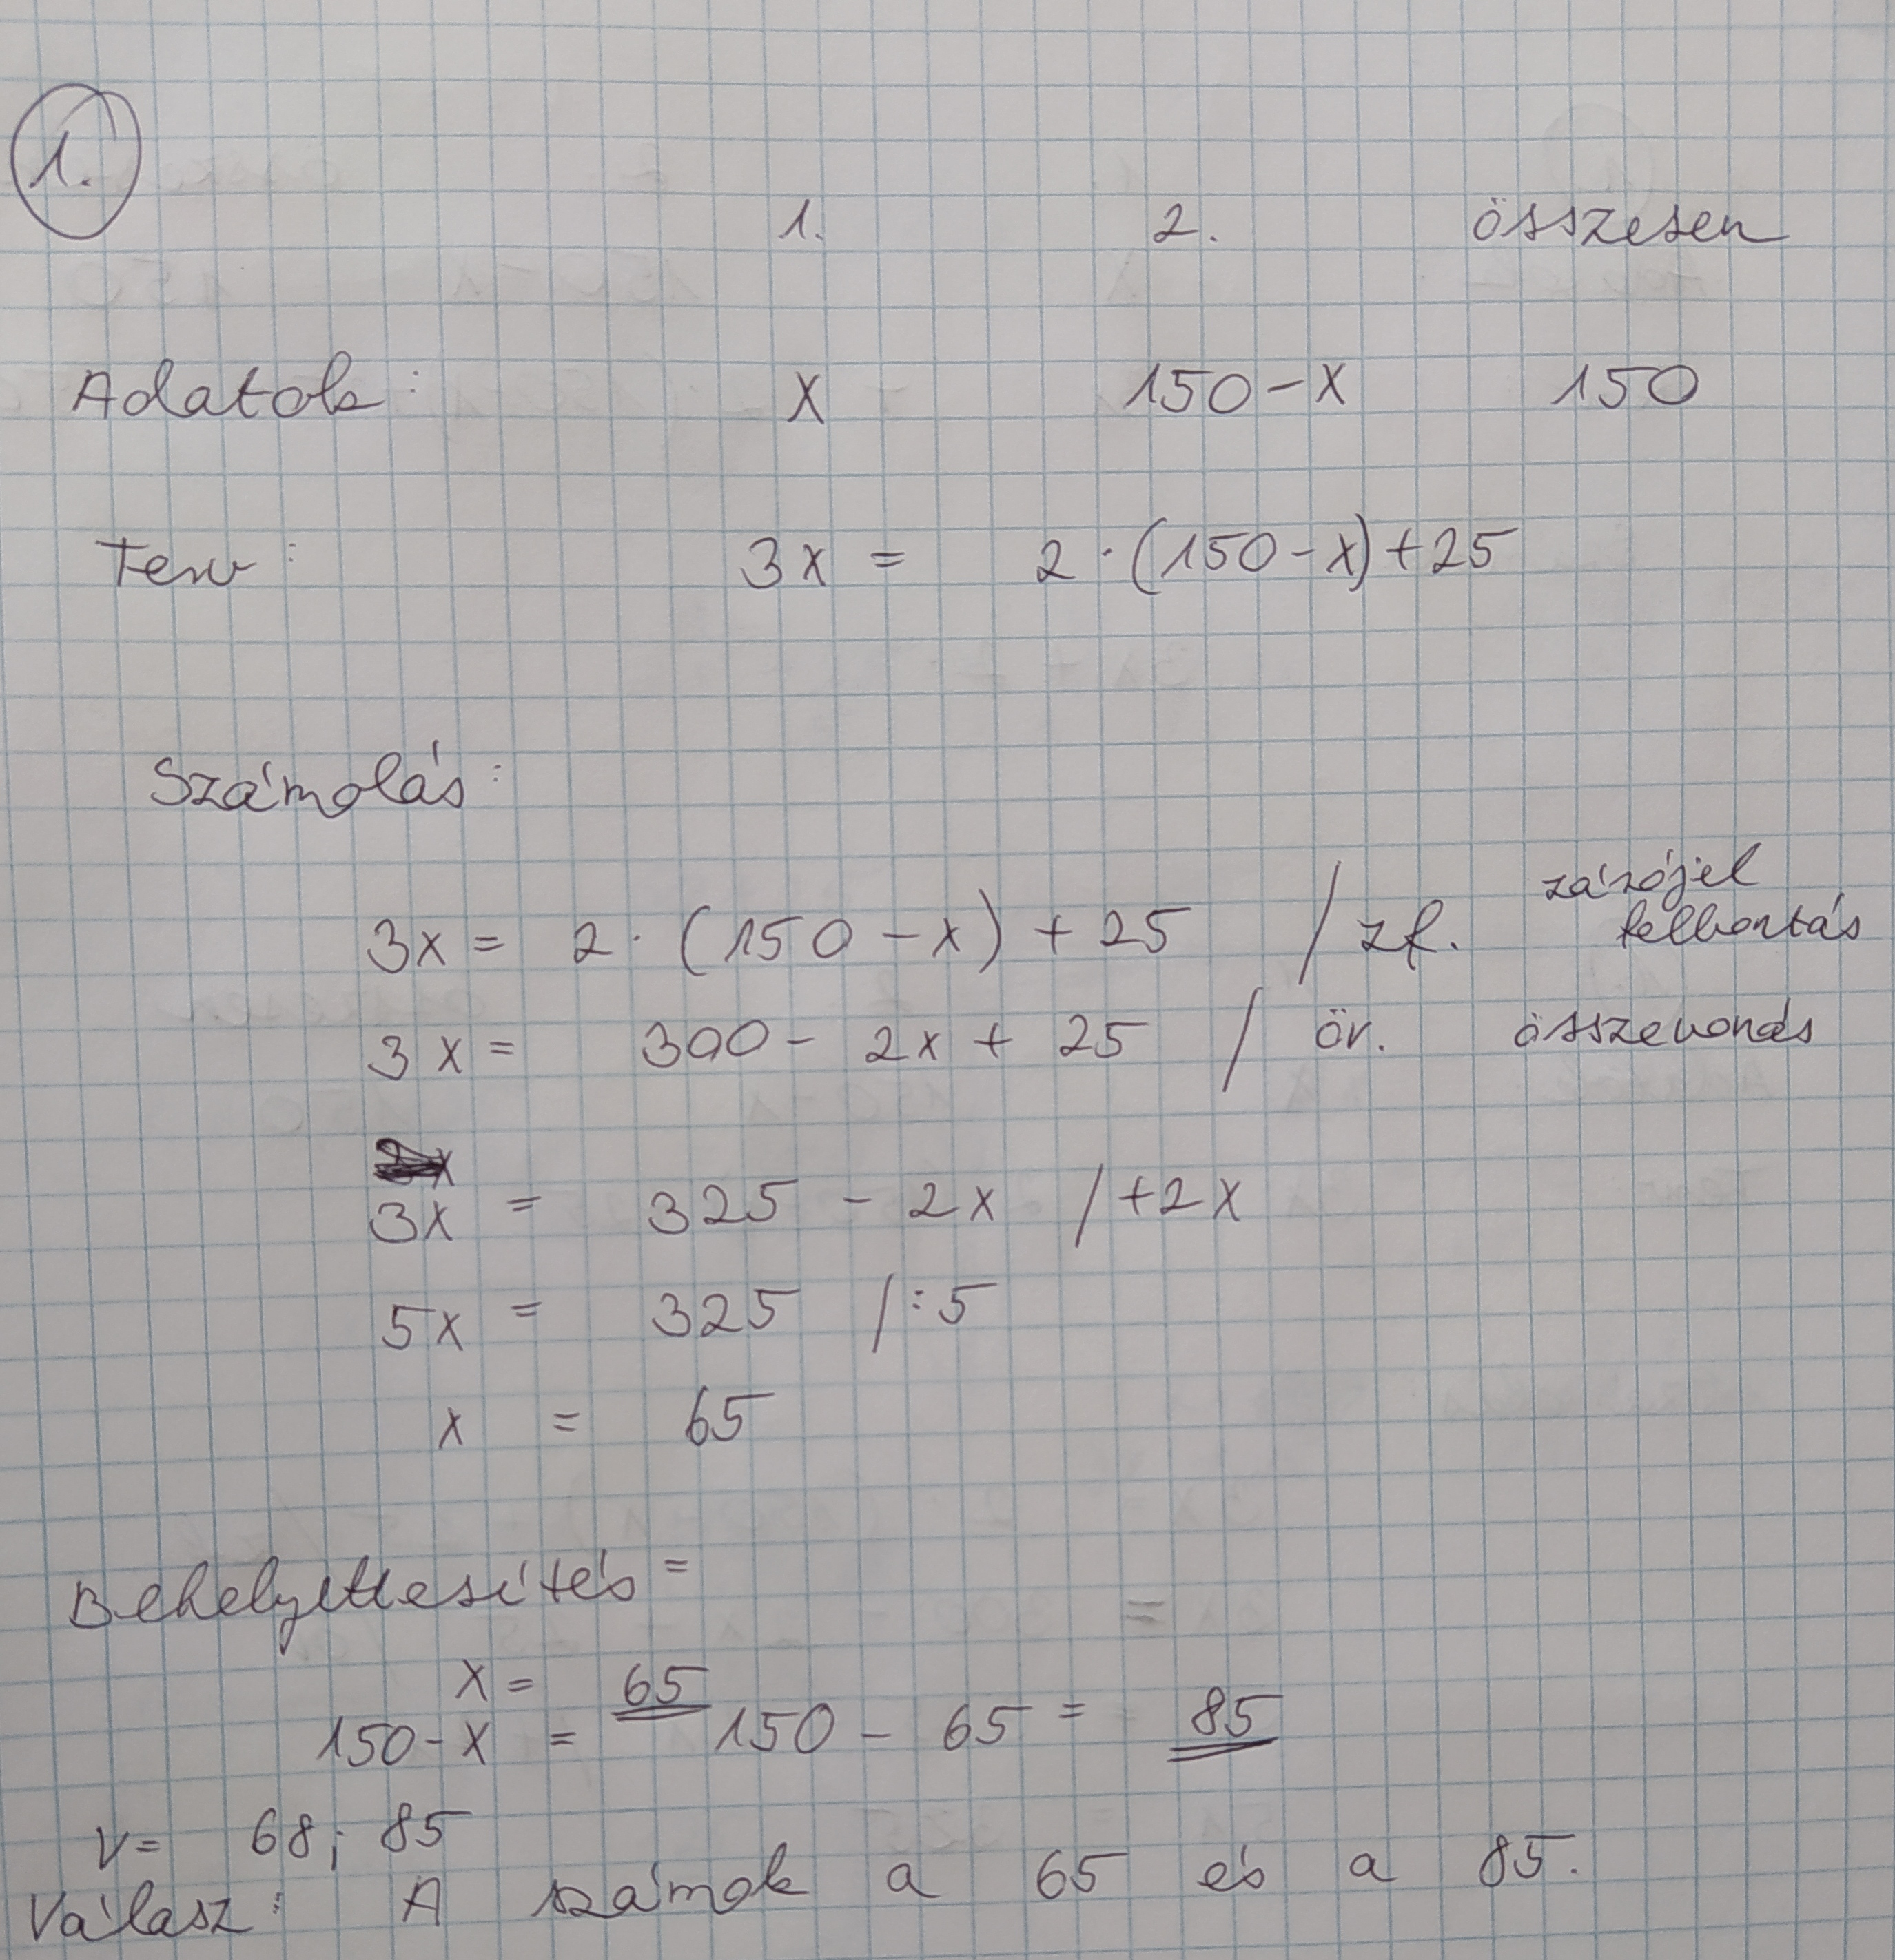 1.
1. 2. összesen
Adatok: x 150-x 150
Terv: 3x = 2·(150-x)+25
Számolás:
3x = 2·(150-x)+25 / zf. zárójel felbontás
3x = 300-2x+25 / öv. összevonás
3x = 325-2x /+2x
5x = 325 /:5
x = 65
Behelyettesítés =
x = 65
150-x = 150-65 = 85
V= 68; 85
Válasz: A számok a 65 és a 85.